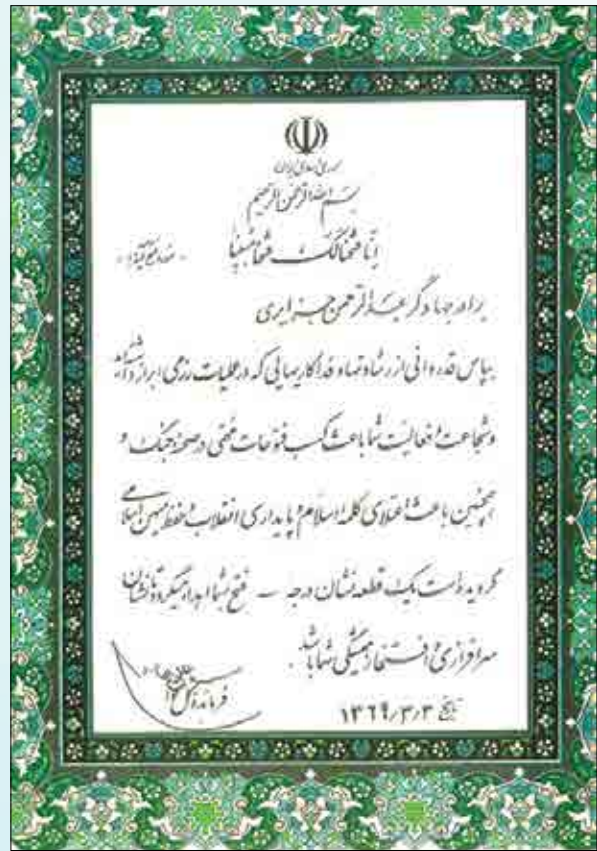 جمهوری اسلامی ایران
بسم الله الرحمن الرحیم
انا فتحنا لک فتحا مبینا
برادر جهادگر عبدالرحمن جزایری
بپاس قدردانی از رشادتها و فداکاریهائی که در عملیات رزمی ابراز داشته‌اید
و شجاعت و فعالیت شما باعث کسب فتوحات مهمی در صحنه جنگ و
همچنین باعث اعتلای کلمه اسلام و پایداری انقلاب و حفظ میهن اسلامی
گردیده است یک قطعه نشان درجه ـ فتح بشما اهداء میگردد تا نشان
سرافرازی و افتخار همیشگی شما باشد.
فرمانده کل
تاریخ ۱۳۶۹/۳/۳